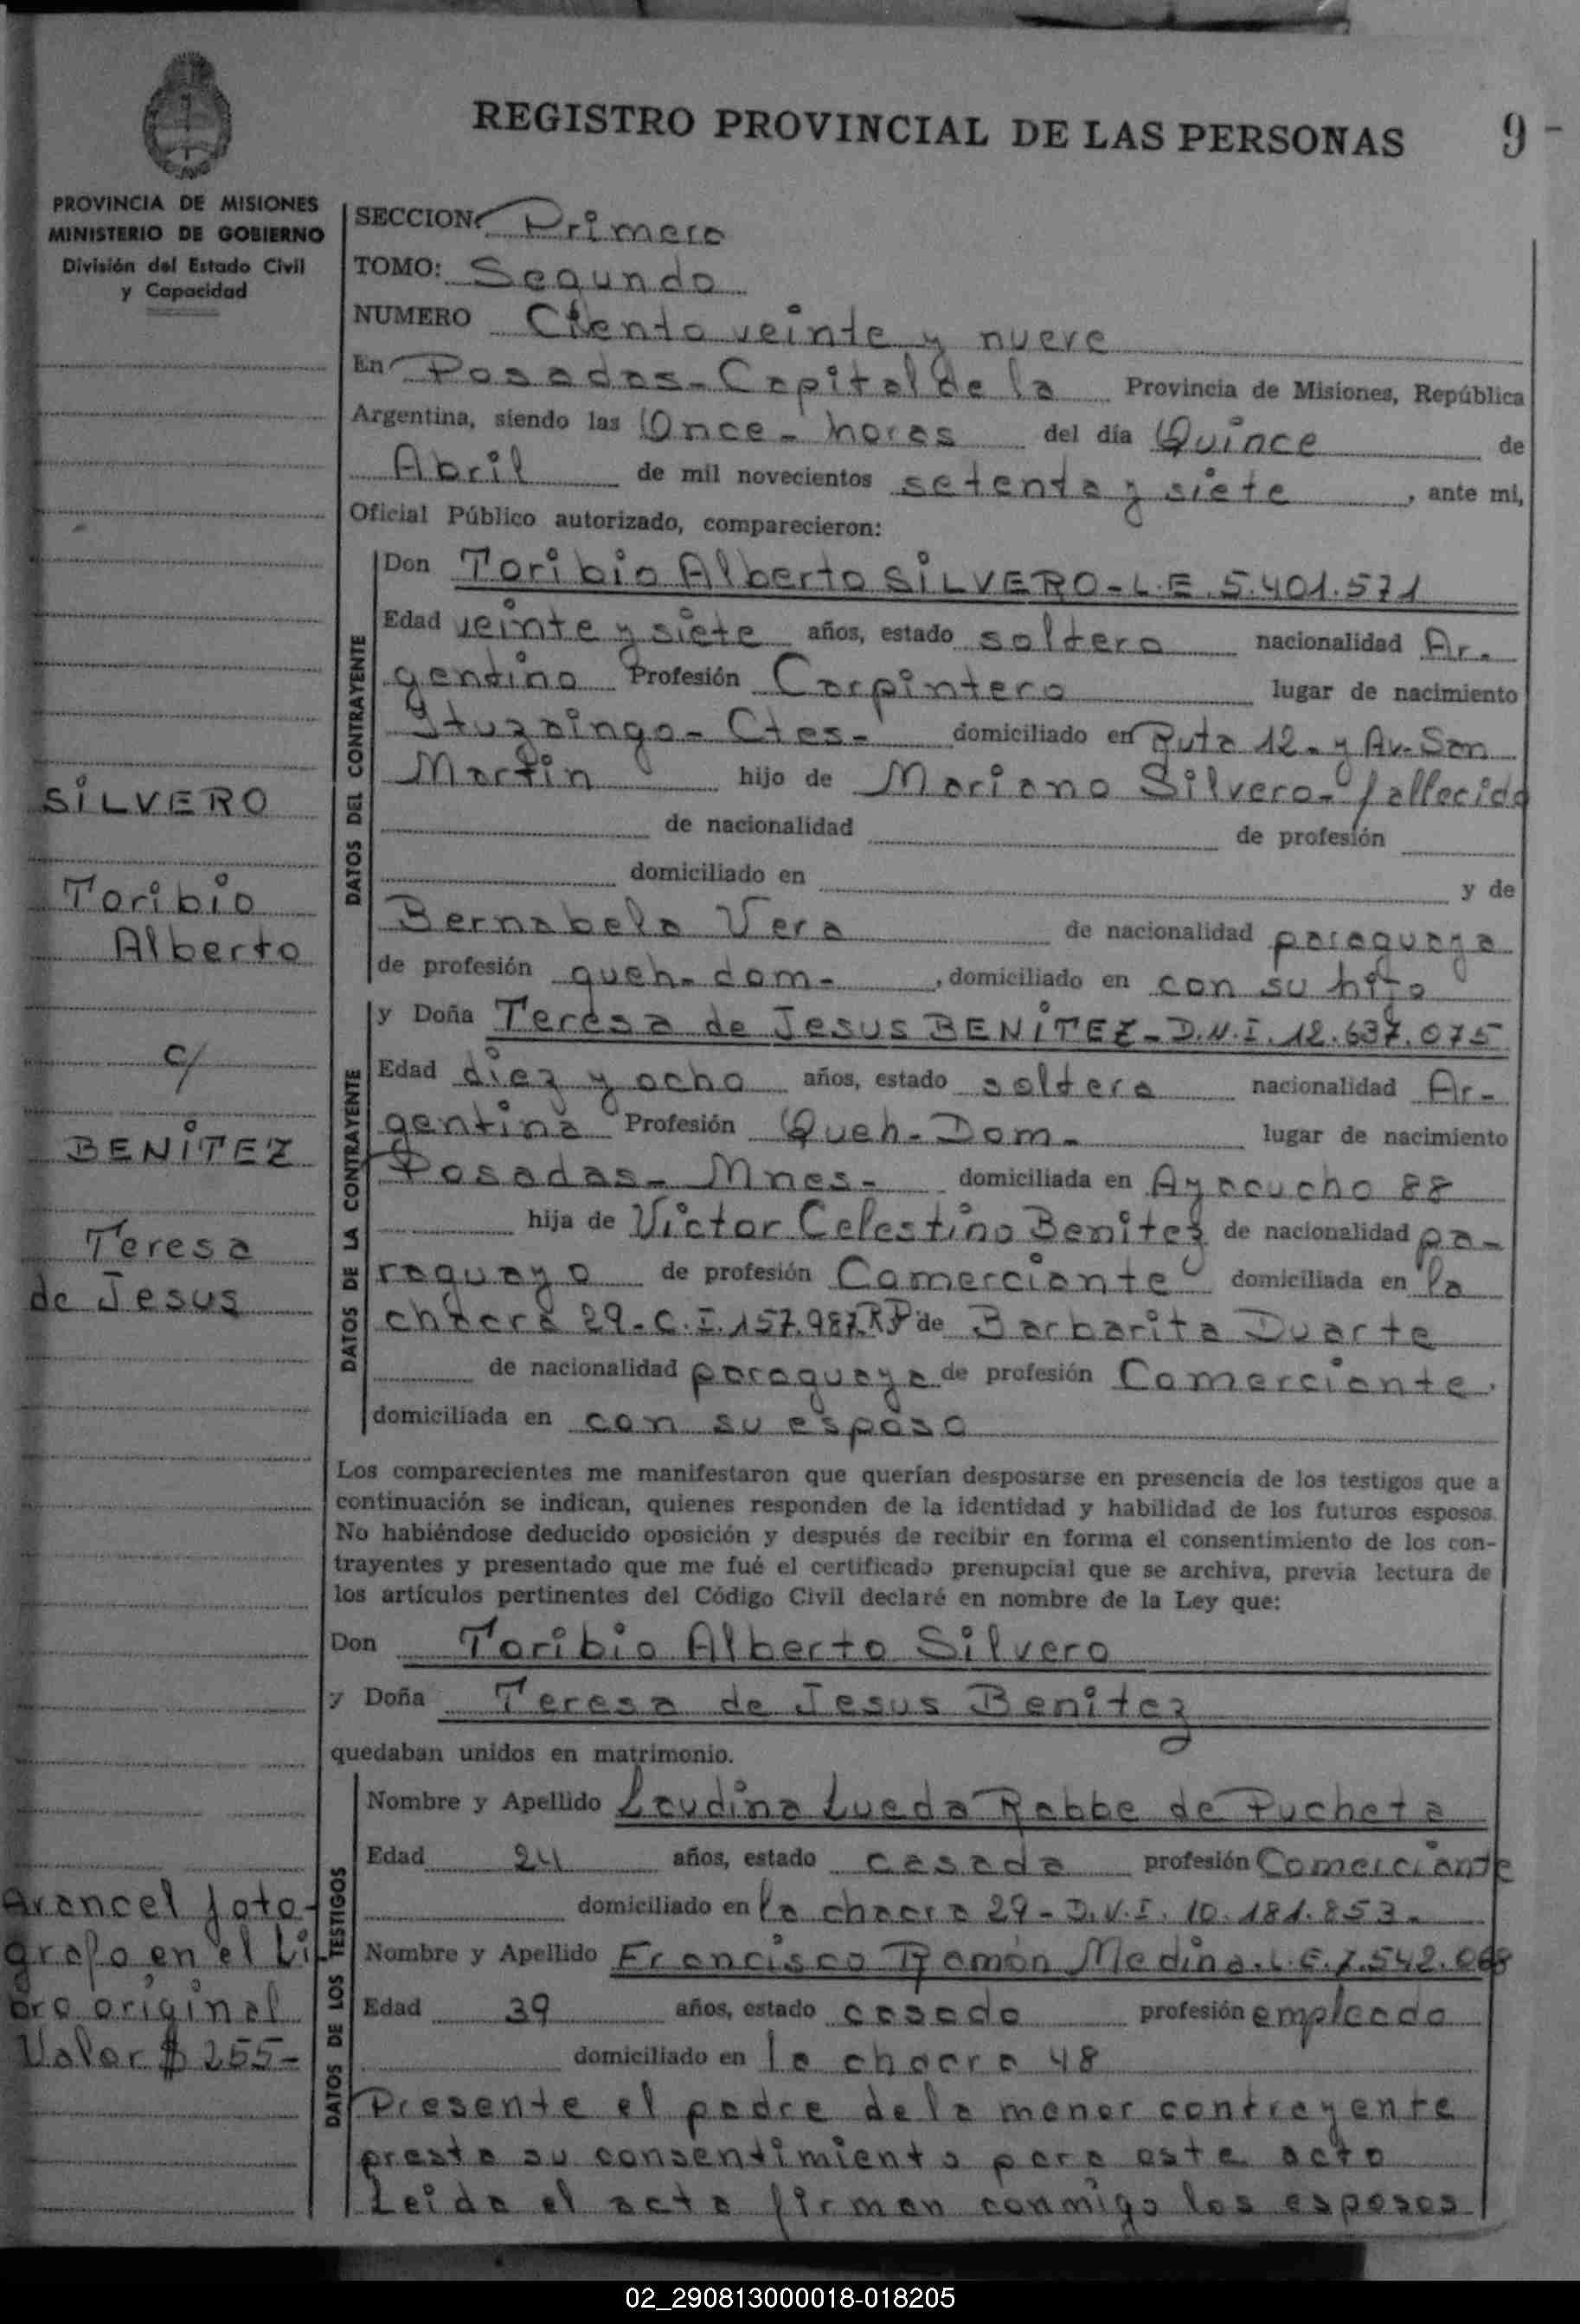 REGISTRO PROVINCIAL DE LAS PERSONAS
9-
PROVINCIA DE MISIONES
MINISTERIO DE GOBIERNO
División del Estado Civil
y Capacidad
SECCION: Primera
TOMO: Segundo
NUMERO Ciento veinte y nueve
En Posadas - Capital de la Provincia de Misiones, República
Argentina, siendo las Once - horas del día Quince de
Abril de mil novecientos setenta y siete, ante mi,
Oficial Público autorizado, comparecieron:
DATOS DEL CONTRAYENTE
Don Toribio Alberto SILVERO - L.E. 5.401.571
Edad veinte y siete años, estado soltero nacionalidad Ar-
gentino Profesión Carpintero lugar de nacimiento
Ytuzaingo - Ctes - domiciliado en Ruta 12 - y Av. San
Martin hijo de Mariano Silvero - fallecido
de nacionalidad de profesión
domiciliado en y de
Bernabela Vera de nacionalidad paraguaya
de profesión queh - dom -, domiciliado en con su hijo
DATOS DE LA CONTRAYENTE
y Doña Teresa de Jesus BENITEZ - D.N.I. 12.637.075
Edad diez y ocho años, estado soltera nacionalidad Ar-
gentina Profesión Queh - Dom - lugar de nacimiento
Posadas - Mnes - domiciliada en Ayacucho 88
hija de Victor Celestino Benitez de nacionalidad pa-
raguayo de profesión Comerciante domiciliada en la
chacra 29 - C.I. 157.987 de Barbarita Duarte
de nacionalidad paraguaya de profesión Comerciante.
domiciliada en con su esposo
Los comparecientes me manifestaron que querían desposarse en presencia de los testigos que a
continuación se indican, quienes responden de la identidad y habilidad de los futuros esposos.
No habiéndose deducido oposición y después de recibir en forma el consentimiento de los con-
trayentes y presentado que me fué el certificado prenupcial que se archiva, previa lectura de
los artículos pertinentes del Código Civil declaré en nombre de la Ley que:
Don Toribio Alberto Silvero
y Doña Teresa de Jesus Benitez
quedaban unidos en matrimonio.
DATOS DE LOS TESTIGOS
Nombre y Apellido Laudina Lueda Rabbe de Pucheta
Edad 24 años, estado casada profesión Comerciante
domiciliado en la chacra 29 - D.N.I. 10.181.853 -
Nombre y Apellido Francisco Ramón Medina. L.E. 7.542.068
Edad 39 años, estado casado profesión empleado
domiciliado en la chacra 48
Presente el padre de la menor contrayente
presta su consentimiento para este acto
Leida el acta firman conmigo los esposos
SILVERO
Toribio
Alberto
c/
BENITEZ
Teresa
de Jesus
Arancel foto-
grafo en el Li-
bro original
Valor $ 255-
02_290813000018-018205